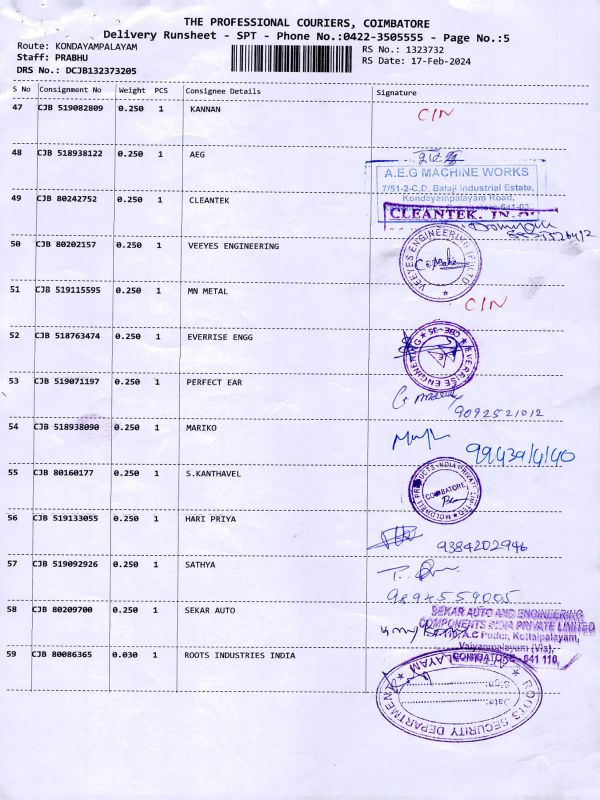 THE PROFESSIONAL COURIERS, COIMBATORE
Delivery Runsheet - SPT - Phone No.:0422-3505555 - Page No.:5
Route: KONDAYAMPALAYAM
RS No.: 1323732
Staff: PRABHU
RS Date: 17-Feb-2024
DRS No.: DCJB132373205
S No Consignment No Weight PCS Consignee Details Signature
47 CJB 519082809 0.250 1 KANNAN
CIN
48 CJB 518938122 0.250 1 AEG
A.E.G MACHINE WORKS
7/51-2-C,D, Balaji Industrial Estate,
Kondayampalayam Road,
49 CJB 80242752 0.250 1 CLEANTEK
CLEANTEK,
50 CJB 80202157 0.250 1 VEEYES ENGINEERING
VEEYES ENGINEERING
51 CJB 519115595 0.250 1 MN METAL
CIN
52 CJB 518763474 0.250 1 EVERRISE ENGG
EVERRISE ENGINEERING
CBE-35
53 CJB 519071197 0.250 1 PERFECT EAR
9092521012
54 CJB 518938090 0.250 1 MARIKO
55 CJB 80160177 0.250 1 S.KANTHAVEL
MOLDWELL PRODUCTS INDIA PRIVATE LIMITED
COIMBATORE
56 CJB 519133055 0.250 1 HARI PRIYA
9384202946
57 CJB 519092926 0.250 1 SATHYA
58 CJB 80209700 0.250 1 SEKAR AUTO
SEKAR AUTO AND ENGINEERING
COMPONENTS INDIA PRIVATE LIMITED
Pudur, Kottaipalayam,
Vaiyampalayam (Via),
COIMBATORE - 641 110.
59 CJB 80086365 0.030 1 ROOTS INDUSTRIES INDIA
ROOTS SECURITY DEPARTMENT
Sign:
Date: